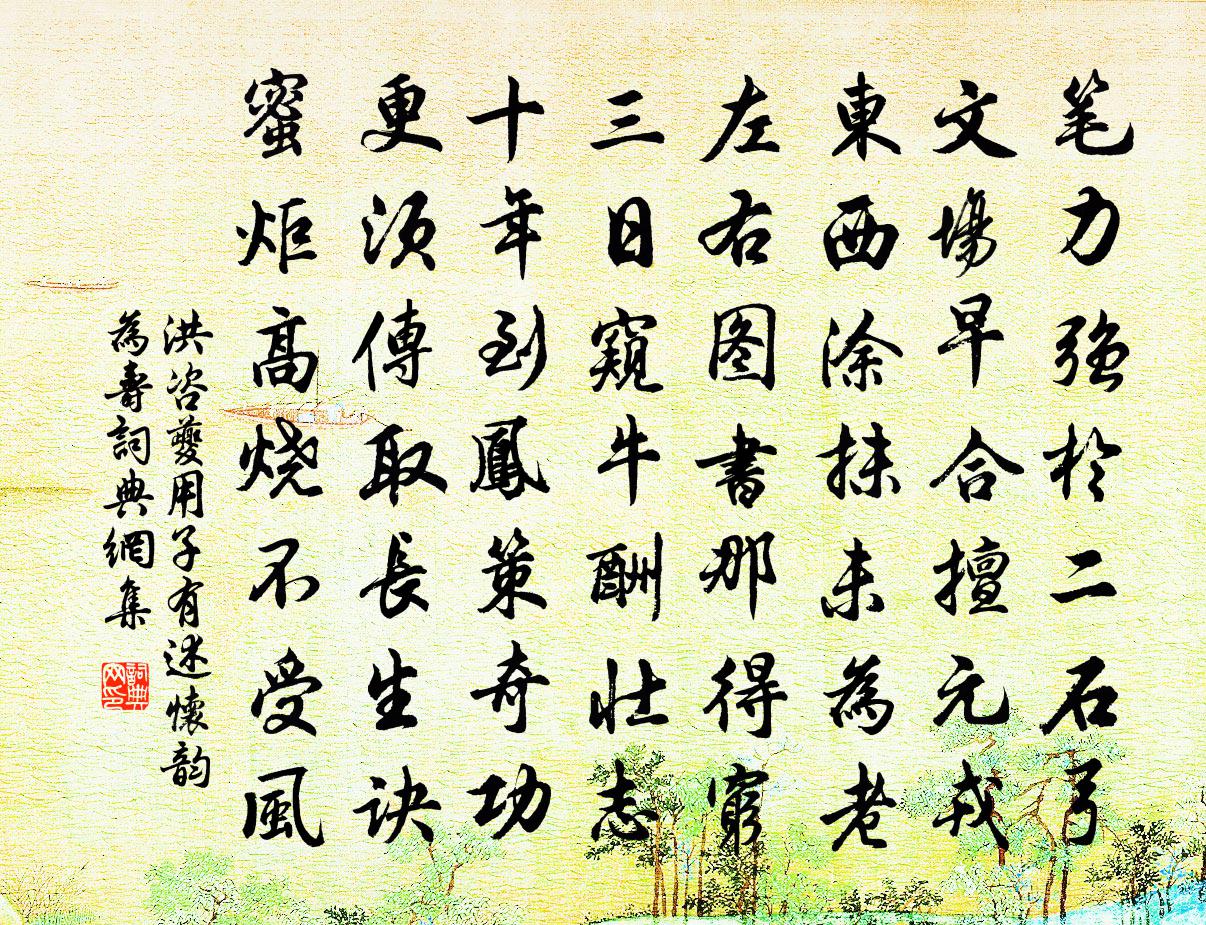 笔力强於二石弓
文場早合擅元戎
東西涂抹未為老
左右图書那得窮
三日窺牛酬壮志
十年到鳳策奇功
更須傳取長生诀
蜜炬高烧不受風
洪咨夔用子有述懷韵
為壽詞典網集
詞典
网印